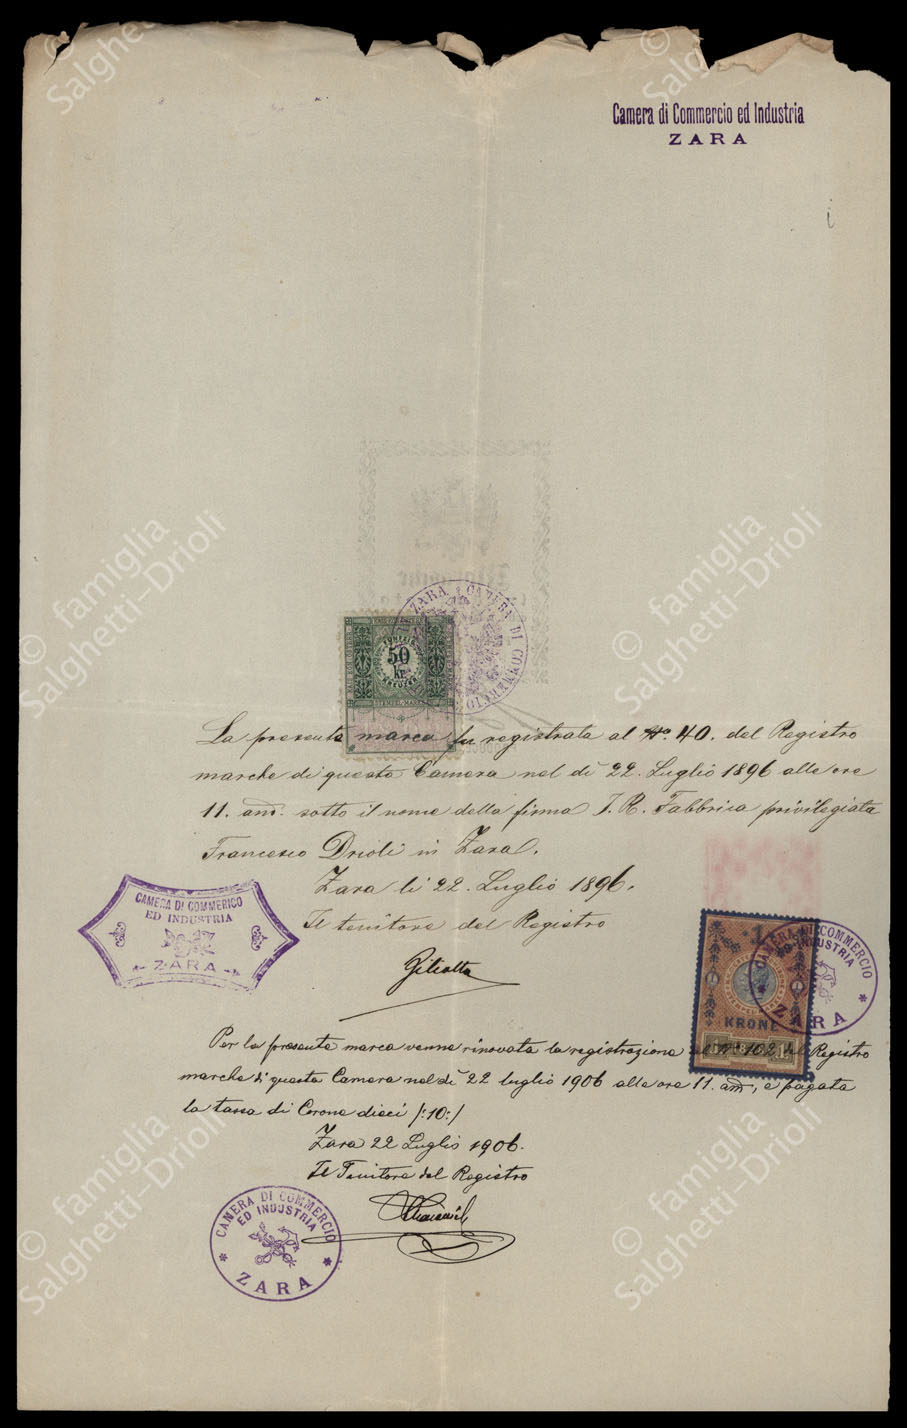 Camera di Commercio ed Industria
ZARA
50
kr.
KREUZER
STEMPEL MARKE
ZARA CAMERA DI COMMERCIO
La presente marca fu registrata al No. 40. del Registro
marche di questa Camera nel dì 22. Luglio 1896 alle ore
11. am. sotto il nome della firma I. R. Fabbrica privilegiata
Francesco Drioli in Zara.
Zara li 22. Luglio 1896.
Il tenitore del Registro
CAMERA DI COMMERICO
ED INDUSTRIA
ZARA
1
KRONE
CAMERA DI COMMERCIO
ED INDUSTRIA
ZARA
Per la presente marca venne rinovata la registrazione al No 102 del Registro
marche di questa Camera nel dì 22 luglio 1906 alle ore 11. am, e pagata
la tassa di Corone dieci /:10:/
Zara 22 Luglio 1906.
Il Tenitore del Registro
CAMERA DI COMMERCIO
ED INDUSTRIA
ZARA
© famiglia
Salghetti-Drioli
© famiglia
Salghetti-Drioli
© famiglia
Salghetti-Drioli
© famiglia
Salghetti-Drioli